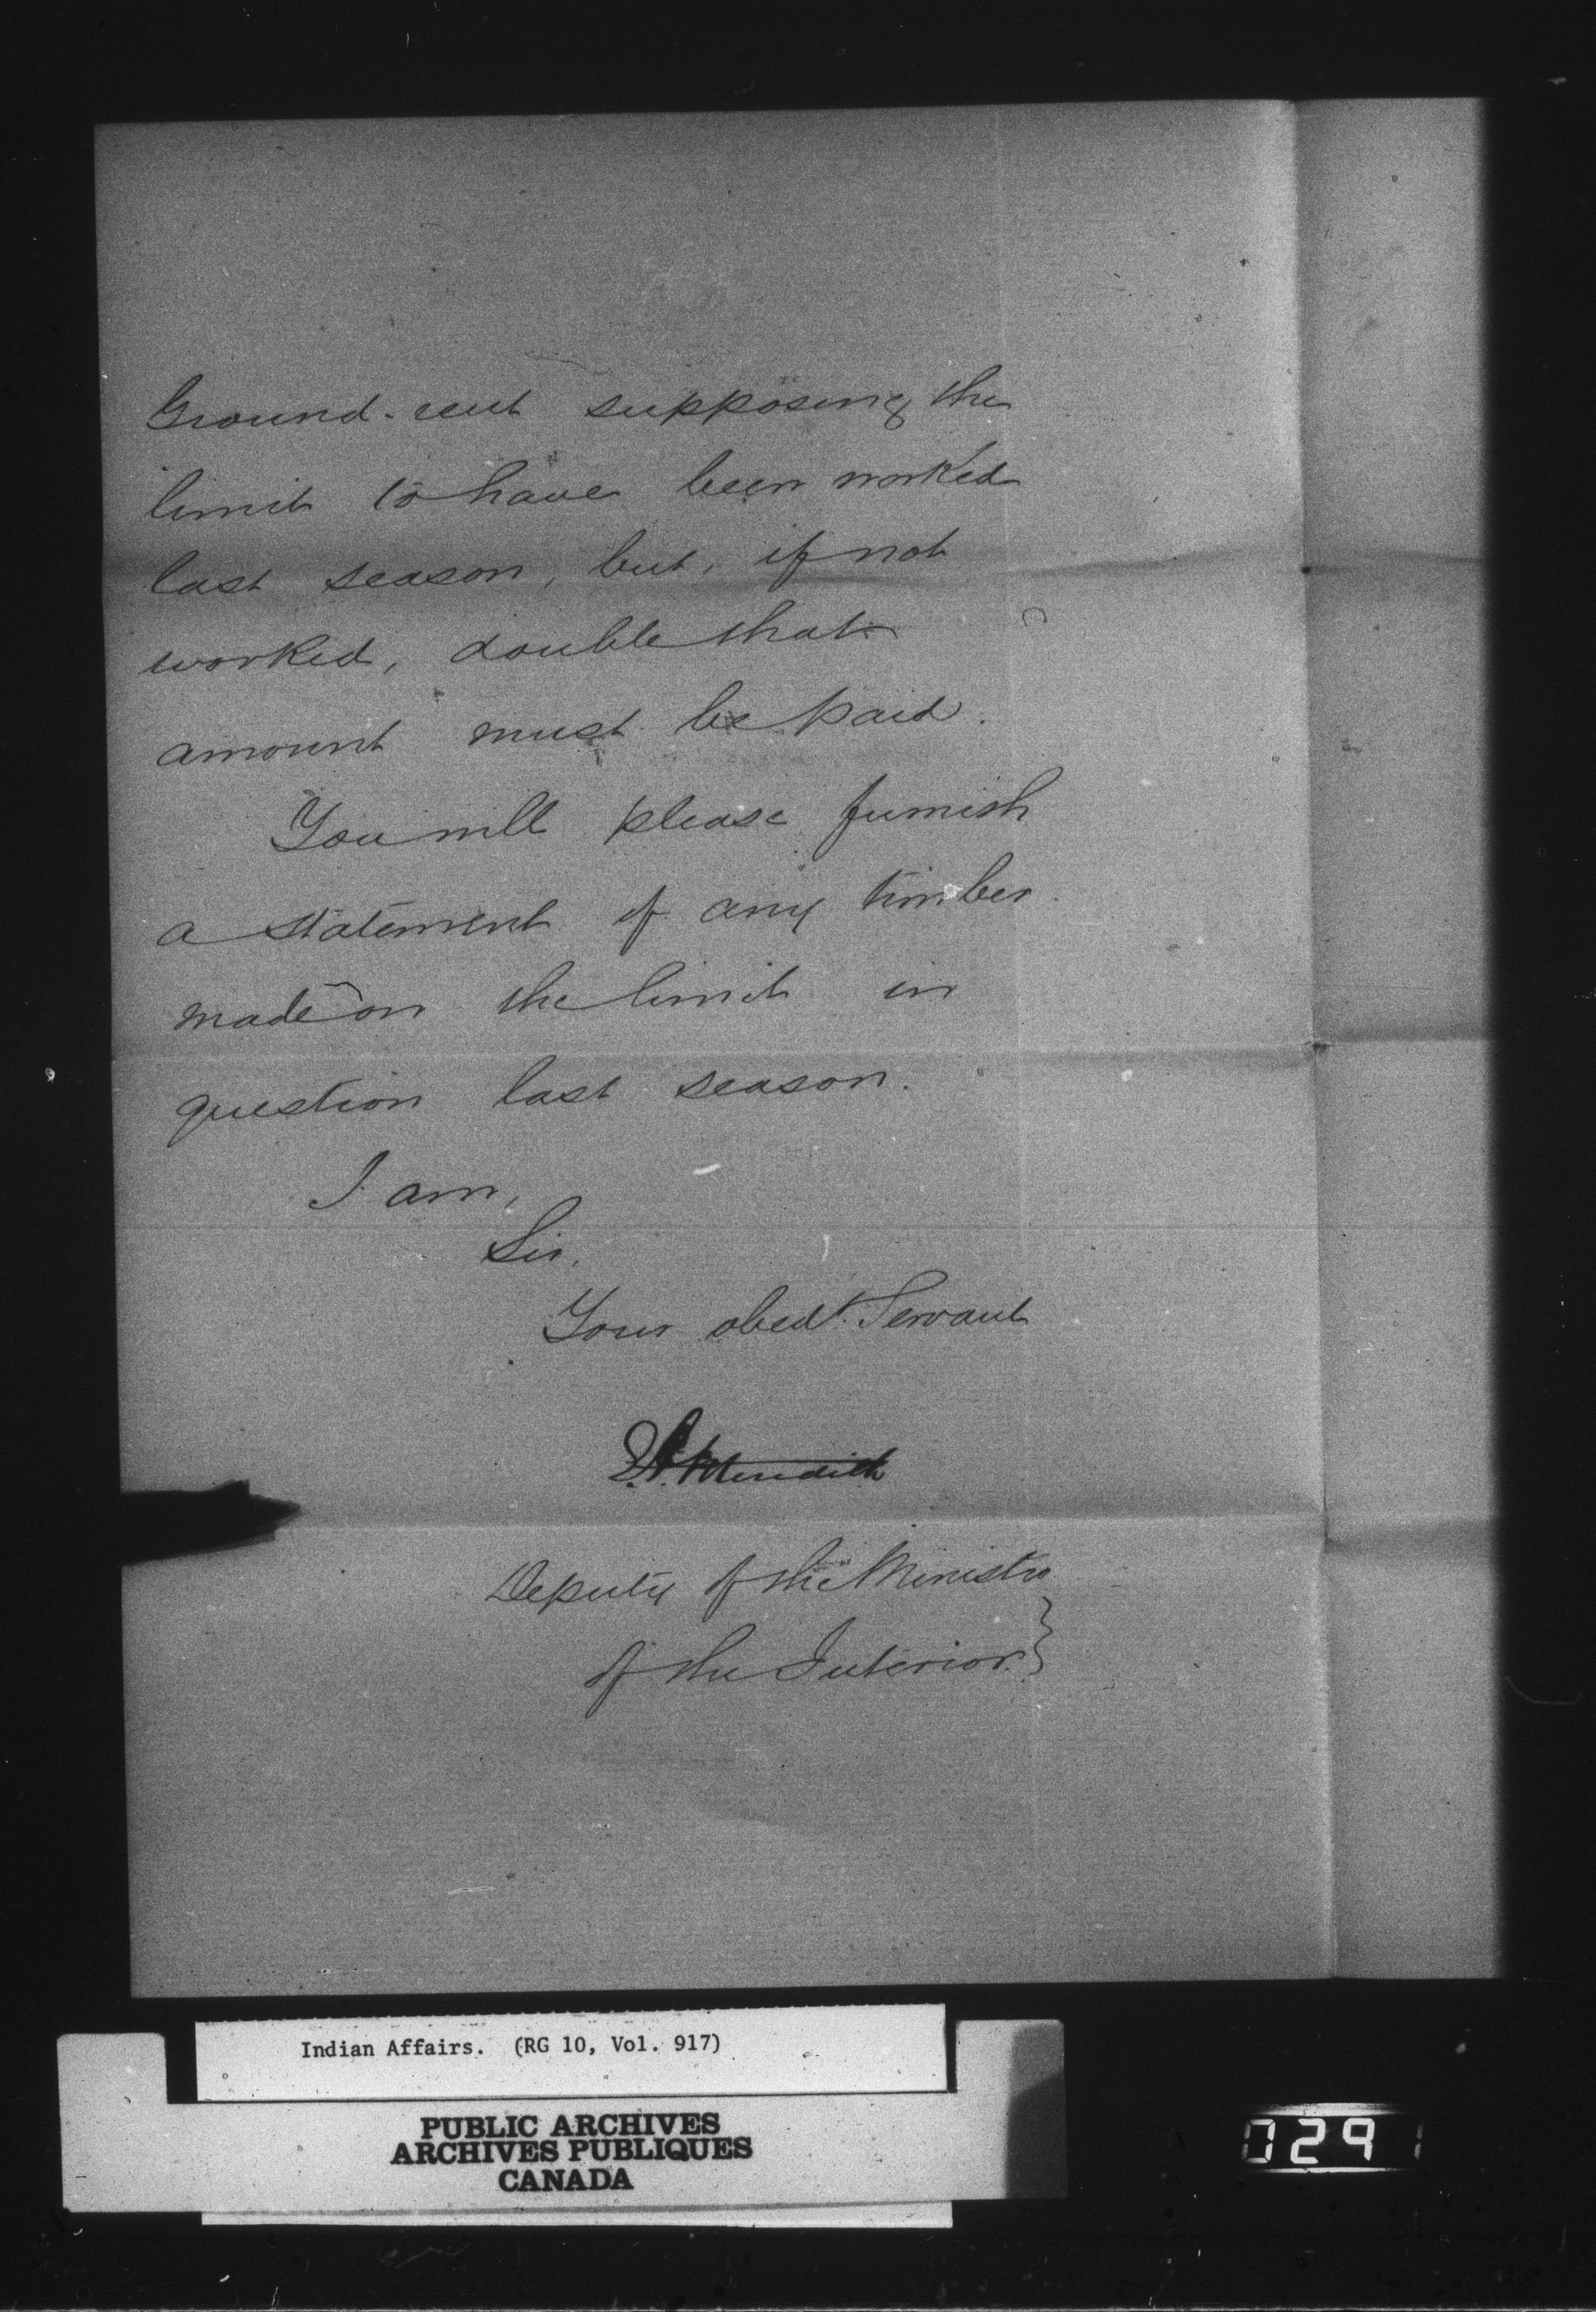 Ground-rent supposing the
limit to have been worked
last season, but, if not
worked, double that
amount must be paid.
You will please furnish
a statement of any timber
made on the limit in
question last season.
I am,
Sir,
Your obedt. Servant
Meredith
Deputy of the Minister
of the Interior.
Indian Affairs. (RG 10, Vol. 917)
PUBLIC ARCHIVES
ARCHIVES PUBLIQUES
CANADA
0291